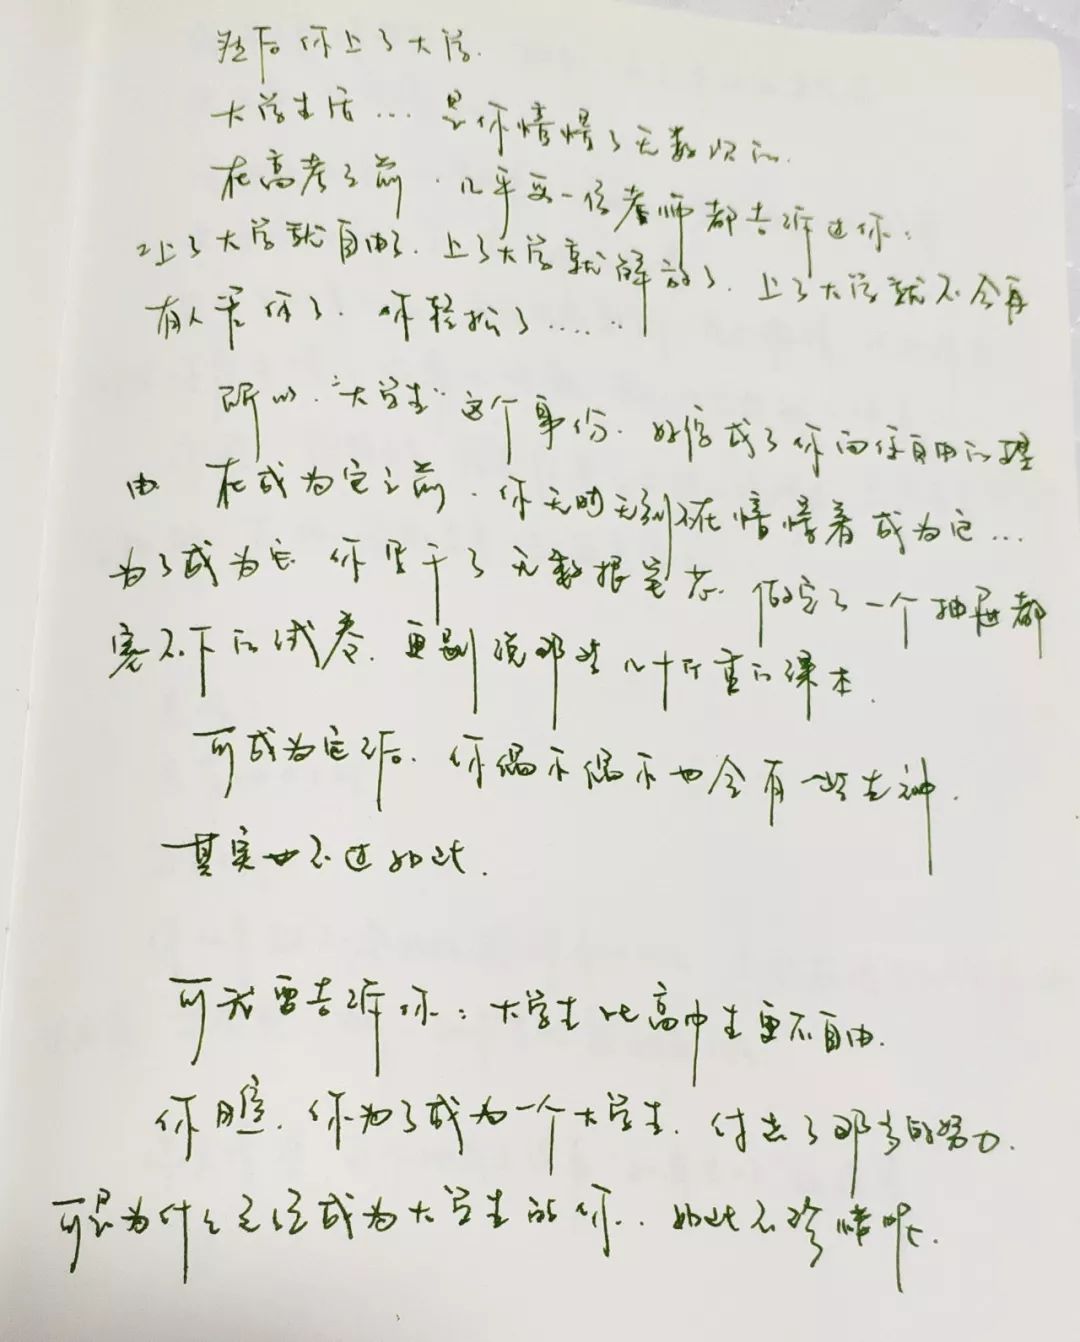 然后你上了大学.
大学生活... 是你憧憬了无数次的.
在高考之前. 几乎每一位老师都告诉过你:
"上了大学就自由了. 上了大学就解放了. 上了大学就不会再
有人管你了. 你轻松了......"
所以. "大学生" 这个身份. 好像成了你向往自由的理
由 在成为它之前. 你无时无刻不在憧憬着成为它...
为了成为它 你写干了无数根笔芯. 做完了一个抽屉都
塞不下的试卷. 更别说那些几十斤重的课本.
可成为它之后. 你偶尔偶尔也会有一些走神.
其实也不过如此.
可我要告诉你: 大学生比高中生更不自由.
你瞧. 你为了成为一个大学生. 付出了那多的努力.
可是为什么已经成为大学生的你.. 如此不珍惜呢.